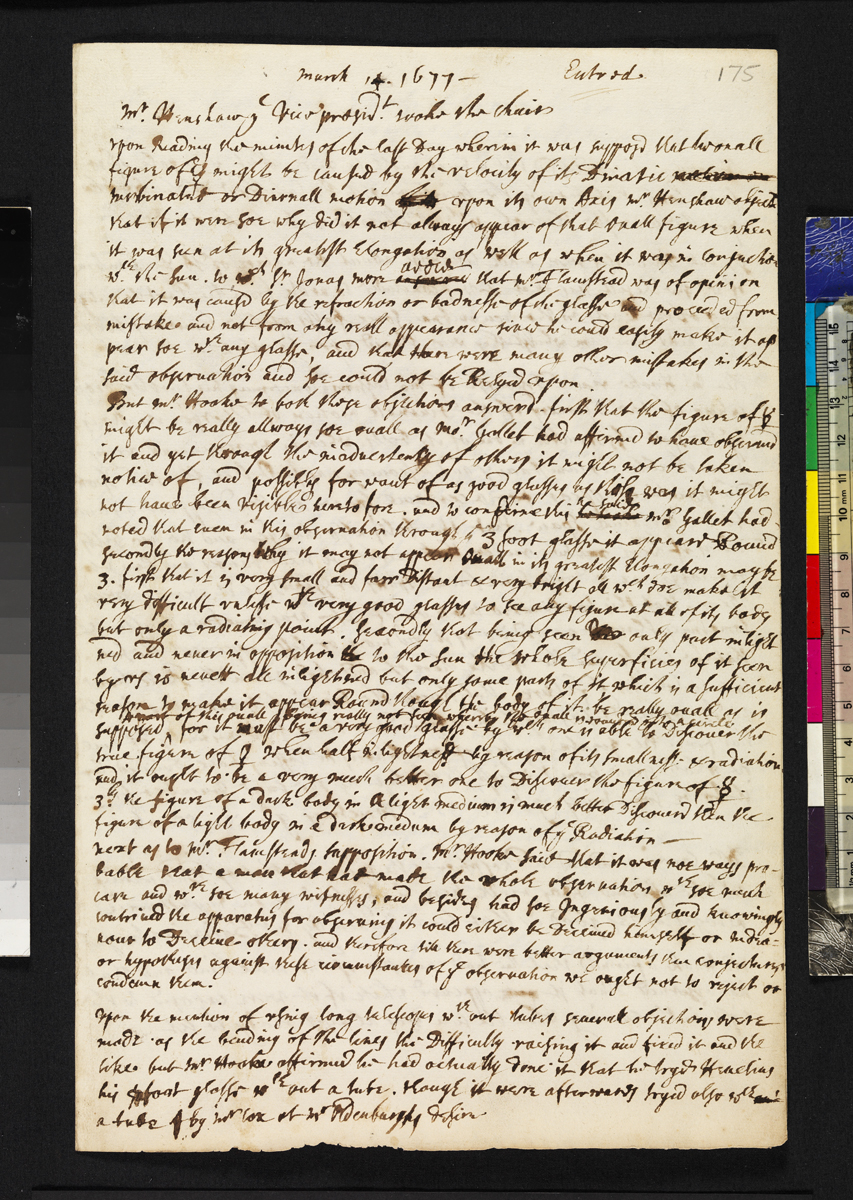 March 14. 1677 — Entred. 175
Mr. Henshaw ye Vice presidt. tooke the chair
Vpon Reading the minuts of the last Day wherein it was supposd that the ouall
figure of ☿ might be caused by the velocity of its Dinetic
turbinated or Diurnall motion vpon its own Axis mr Henshaw objected
that if it were soe why did it not always appear of that ouall figure when
it was seen at its greatest Elongation as well as when it was in conjunction
wth the Sun. to wch Sr Jonas more added that mr Flamstead was of opinion
that it was causd by the refraction or badnesse of the glasse and proceeded from
mistake and not from any reall appearance since he could easily make it ap
pear soe wth any glasse, and that there were many other mistakes in the
said obseruation and soe could not be Relyed vpon.
But mr. Hooke to both these objections answerd. first that the figure of ☿
might be really allways soe ouall as monr. Gallet had affirmed to haue obserued
it and yet through the inaduertency of others it might not be taken
notice of, and possibly for want of as good glasses as this was it might
not haue been visible heretofore. and to confirme this mr. Gallet had
noted that euen in this obseruation through a 3 foot glasse it appeard Round
Secondly the reason why it may not appear ouall in its greatest Elongation may be
3. first that it is very small and farr Distant & very bright all wch doe make it
very difficult vnlesse wth very good glasses to see any figure at all of its body
but only a radiating point. Secondly that being seen only part inlight
ned and neuer in opposition to the Sun the whole superficies of it seen
by vs is neuer all inlightned but only some part of it which is a sufficient
reason to make it appear Round though the body of it be really ouall as is
part of this ouall being really not seen whereby the ouall is
supposed, for it must be a very good glasse by wch one is able to Discouer the
true figure of ☿ when half inlightned by reason of its smallnesse & radiation
and it ought to be a very much better one to Discouer the figure of ☿.
3d. the figure of a dark body in a light medium is much better Discouerd then the
figure of a light body in a dark medium by reason of ye Radiation —
next as to Mr. Flamsteads supposition. Mr Hooke said that it was noe ways pro-
bable that a man that had made the whole obseruation wth soe much
care and wth soe many witnesses, and besides had soe Ingeniously and knowingly
contriued the apparatus for obseruing it could either be Deceiued himself or indea-
uour to Deceiue others. and therfore till there were better arguments then conjectures
or hypotheses against these circumstances of ye obseruation we ought not to reject or
condemn them.
Vpon the mention of vsing long telescopes wthout tubes seuerall objections were
made. as the bending of the lines the Difficulty raising it and fixed it and the
like. but mr Hooke affirmed he had actually done it that he tryd Heuelius
his foot glasse wthout a tube. though it were afterwards tryd also wth
a tube by mr Cox at mr Oldenburghs desire.